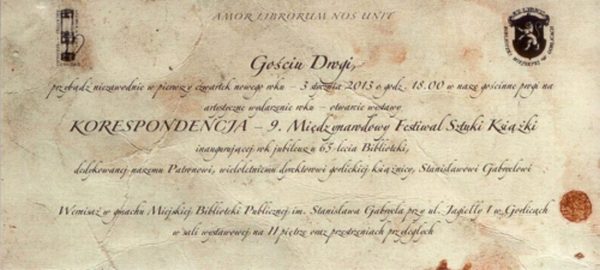 AMOR LIBRORUM NOS UNIT
Gościu Drogi,
przybądź niezawodnie w pierwszy czwartek nowego roku – 3 stycznia 2013 o godz. 18.00 w nasze gościnne progi na
artystyczne wydarzenie roku – otwarcie wystawy
KORESPONDENCJA – 9. Międzynarodowy Festiwal Sztuki Książki
inaugurującej rok jubileuszu 65-lecia Biblioteki,
dedykowanej naszemu Patronowi, wieloletniemu dyrektorowi gorlickiej książnicy, Stanisławowi Gabryelowi
Wernisaż w gmachu Miejskiej Biblioteki Publicznej im. Stanisława Gabryela przy ul. Jagiełły 1 w Gorlicach
w sali wystawowej na II piętrze oraz przestrzeniach przyległych